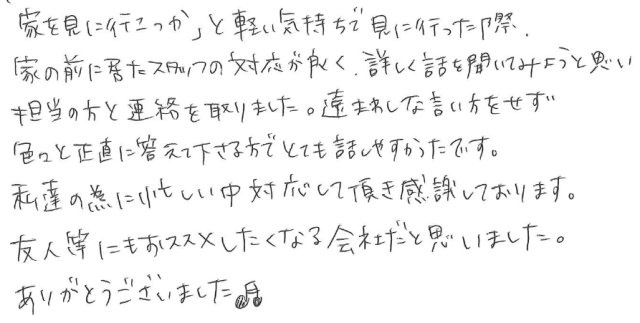 「家を見に行こっか」と軽い気持ちで見に行った際、
家の前に居たスタッフの対応が良く、詳しく話を聞いてみようと思い
担当の方と連絡を取りました。遠まわしな言い方をせず
色々と正直に答えて下さる方でとても話しやすかったです。
私達の為に忙しい中対応して頂き感謝しております。
友人等にもおススメしたくなる会社だと思いました。
ありがとうございました♫